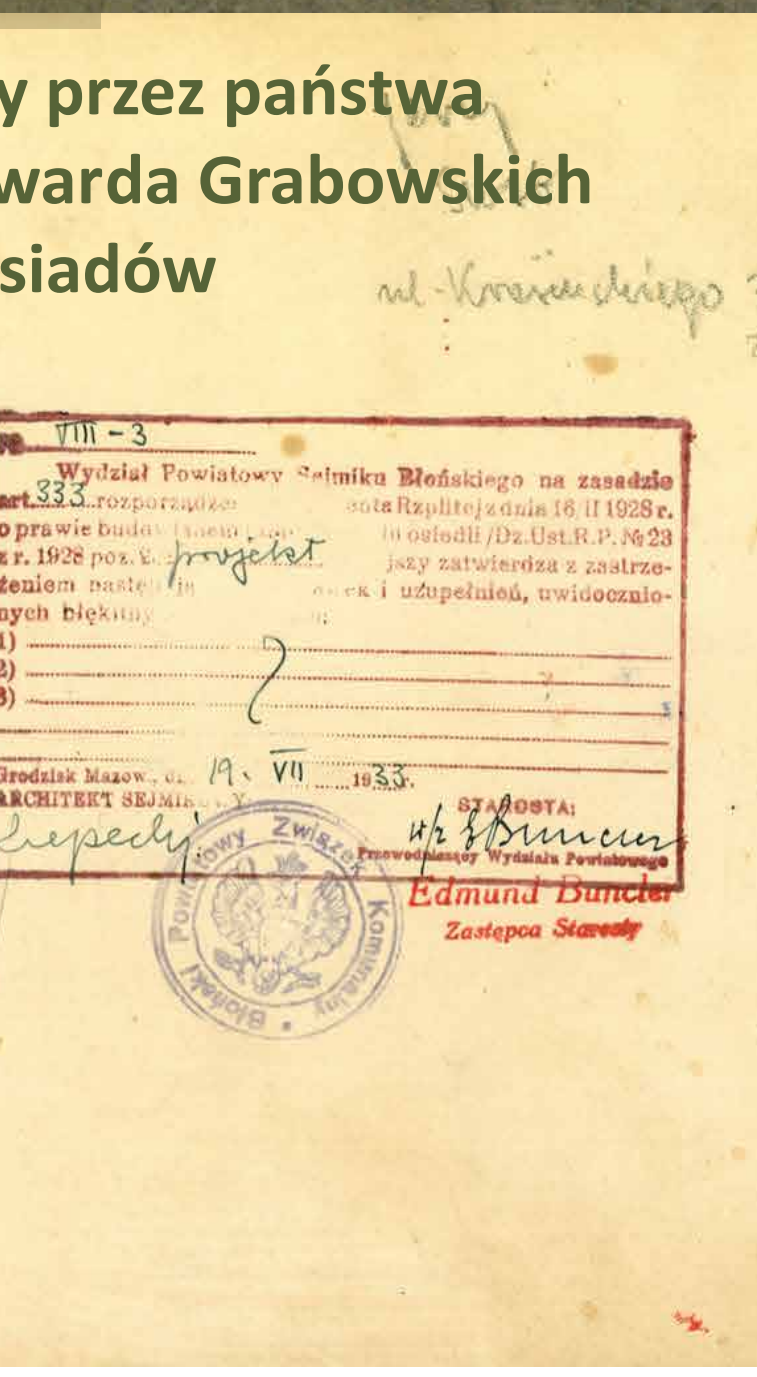 y przez państwa
warda Grabowskich
siadów
ul. Krasińskiego
VIII - 3
Wydział Powiatowy Sejmiku Błońskiego na zasadzie
art. 333 rozporządzen enta Rzplitej z dnia 16 II 1928 r.
o prawie budow osiedli /Dz.Ust.R.P. № 23
z r. 1928 poz. projekt jszy zatwierdza z zastrze-
żeniem nastę i uzupełnień, uwidocznio-
nych błękitn
1)
2)
3)
Grodzisk Mazow., d. 19. VII 1933 r.
ARCHITEKT SEJMIK Y STAROSTA:
w/z EBuncler
Przewodniczący Wydziału Powiatowego
Edmund Buncler
Zastępca Starosty
Błoński Powiatowy Związek Komunalny